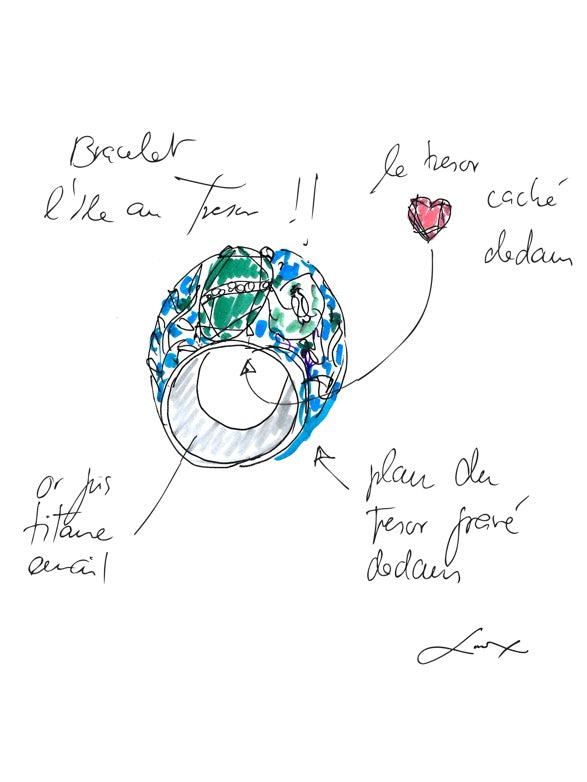 Bracelet
l'Ile au Tresor !!
le tresor
caché
dedans
or gris
titane
email
plan du
tresor gravé
dedans